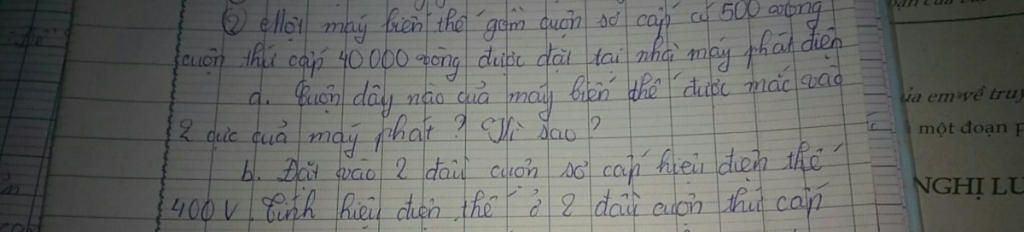 ② Một máy biến thế gồm cuộn sơ cấp có 500 vòng
cuộn thứ cấp 40 000 vòng được đặt tại nhà máy phát điện
a. Cuộn dây nào của máy biến thế được mắc vào
2 cực của máy phát? Vì sao?
b. Đặt vào 2 đầu cuộn sơ cấp hiệu điện thế
400 V. Tính hiệu điện thế ở 2 đầu cuộn thứ cấp
ủa em về truy
một đoạn p
NGHỊ LU